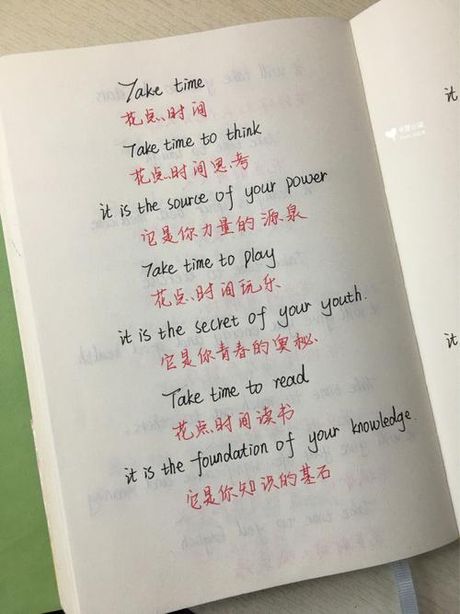 Take time
花点时间
Take time to think
花点时间思考
it is the source of your power
它是你力量的源泉
Take time to play
花点时间玩乐
it is the secret of your youth.
它是你青春的奥秘
Take time to read
花点时间读书
it is the foundation of your knowledge.
它是你知识的基石
it
it